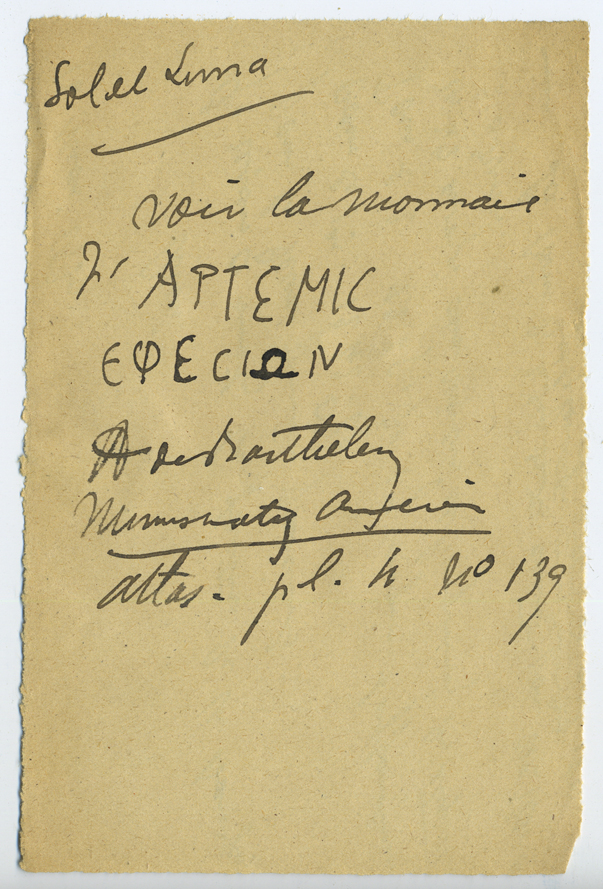 Sol et Luna
voir la monnaie
d' ΑΡΤΕΜΙC
ЄΦЄCΙΩΝ
A de Barthelemy
Numismatiq ancien
atlas. pl. 4 No 139